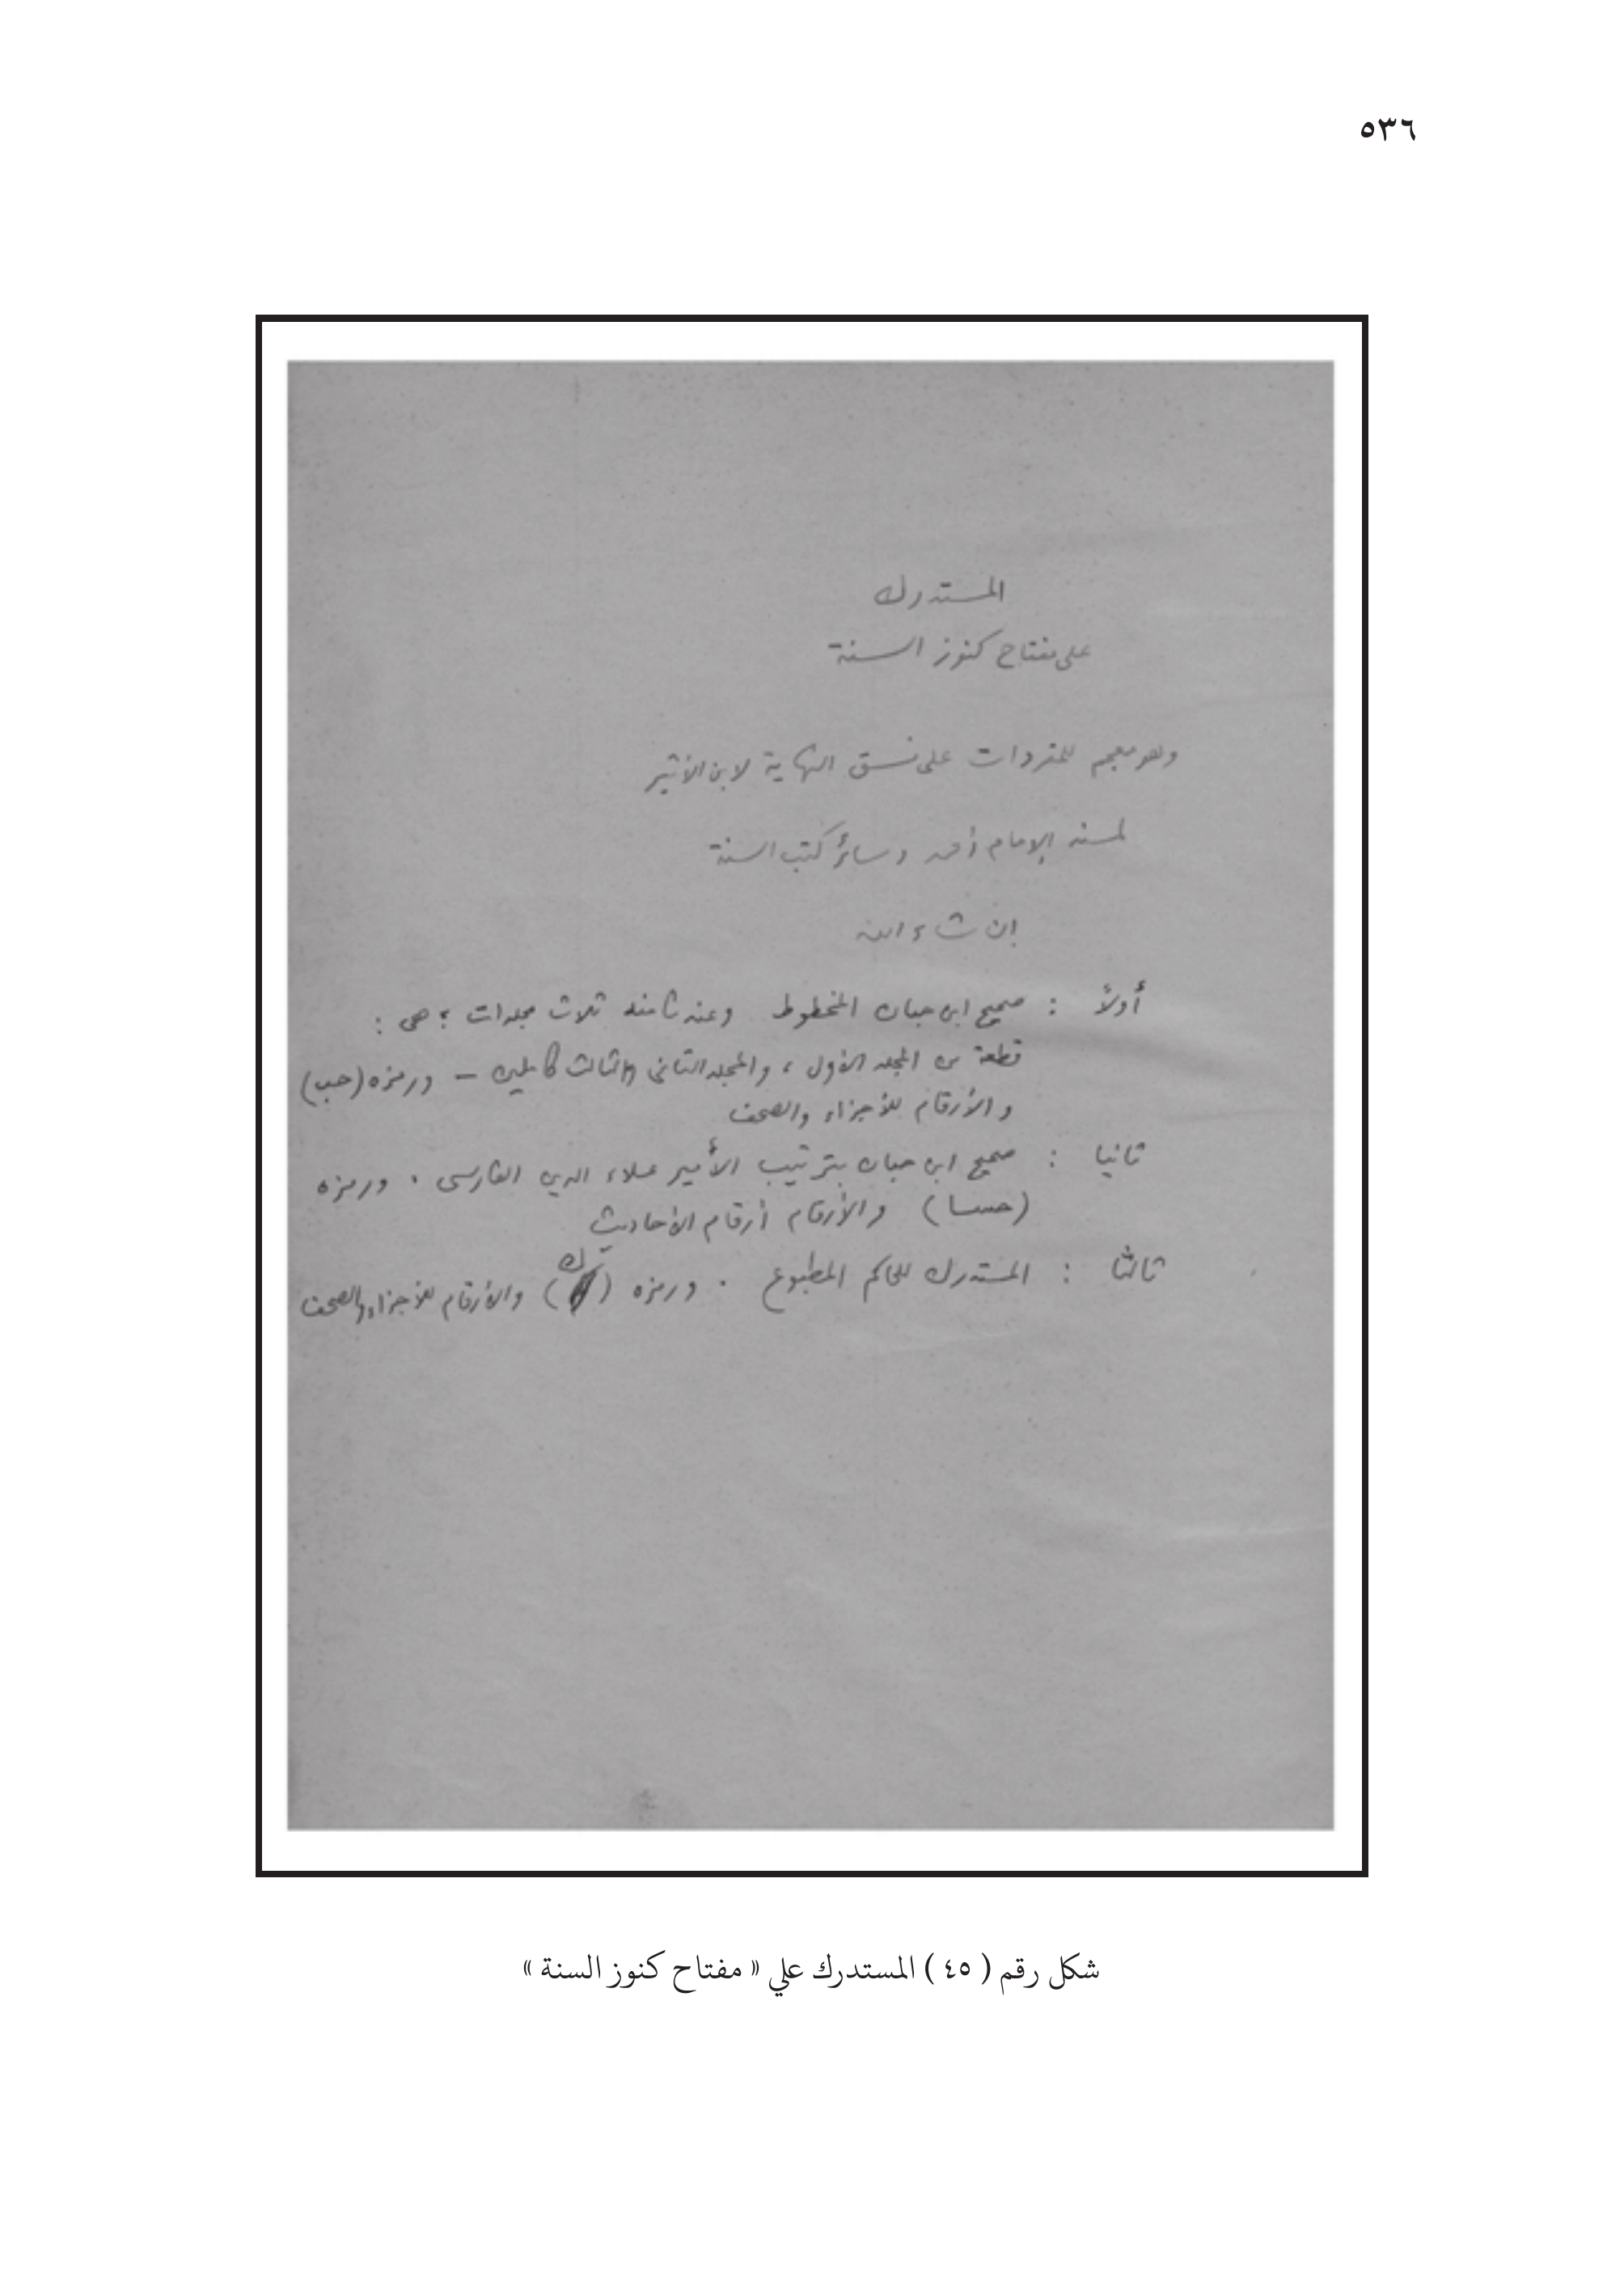 ٥٣٦
المستدرك
على مفتاح كنوز السنة
وهو معجم للمفردات على نسق النهاية لابن الأثير
لمسند الإمام أحمد وسائر كتب السنة
إن شاء الله
أولاً : صحيح ابن حبان المخطوط وعندنا منه ثلاث مجلدات ؛ هى :
قطعة من المجلد الأول ، والمجلد الثانى والثالث كاملين – ورمزه (حب)
والأرقام للأجزاء والصحف
ثانيا : صحيح ابن حبان بترتيب الأمير علاء الدين الفارسى . ورمزه
(حسا) والأرقام أرقام الأحاديث
ثالثا : المستدرك للحاكم المطبوع . ورمزه (ك) والأرقام للأجزاء والصحف
شكل رقم ( ٤٥ ) المستدرك علي « مفتاح كنوز السنة »